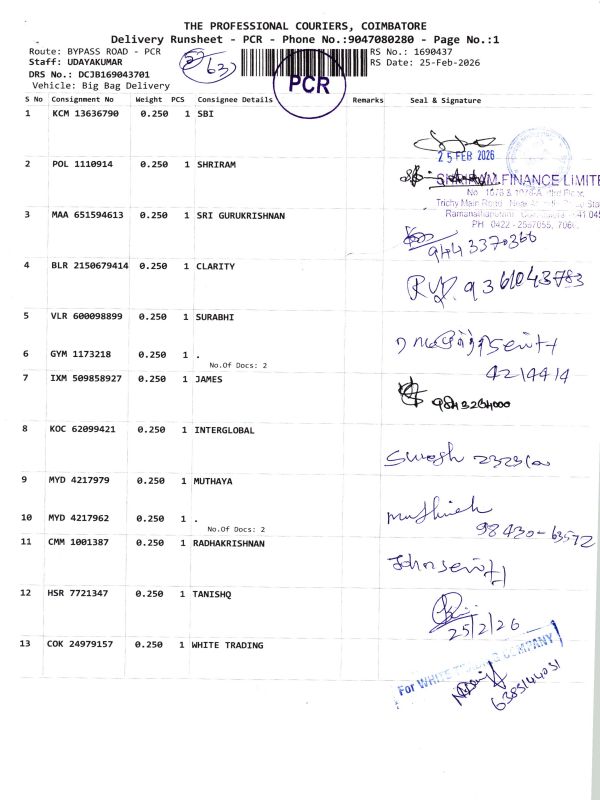 THE PROFESSIONAL COURIERS, COIMBATORE
Delivery Runsheet - PCR - Phone No.:9047080280 - Page No.:1
Route: BYPASS ROAD - PCR
RS No.: 1690437
Staff: UDAYAKUMAR
RS Date: 25-Feb-2026
DRS No.: DCJB169043701
Vehicle: Big Bag Delivery
PCR
S No Consignment No Weight PCS Consignee Details Remarks Seal & Signature
1 KCM 13636790 0.250 1 SBI
25 FEB 2026
2 POL 1110914 0.250 1 SHRIRAM
FINANCE LIMITE
Trichy Main Road
PH 0422 - 2567055,
3 MAA 651594613 0.250 1 SRI GURUKRISHNAN
4 BLR 2150679414 0.250 1 CLARITY
9361043783
5 VLR 600098899 0.250 1 SURABHI
6 GYM 1173218 0.250 1 .
No.Of Docs: 2
4214414
7 IXM 509858927 0.250 1 JAMES
9843264000
8 KOC 62099421 0.250 1 INTERGLOBAL
9 MYD 4217979 0.250 1 MUTHAYA
10 MYD 4217962 0.250 1 .
No.Of Docs: 2
98430-63572
11 CMM 1001387 0.250 1 RADHAKRISHNAN
12 HSR 7721347 0.250 1 TANISHQ
25/2/26
13 COK 24979157 0.250 1 WHITE TRADING
For WHITE TRADING COMPANY
6385144031